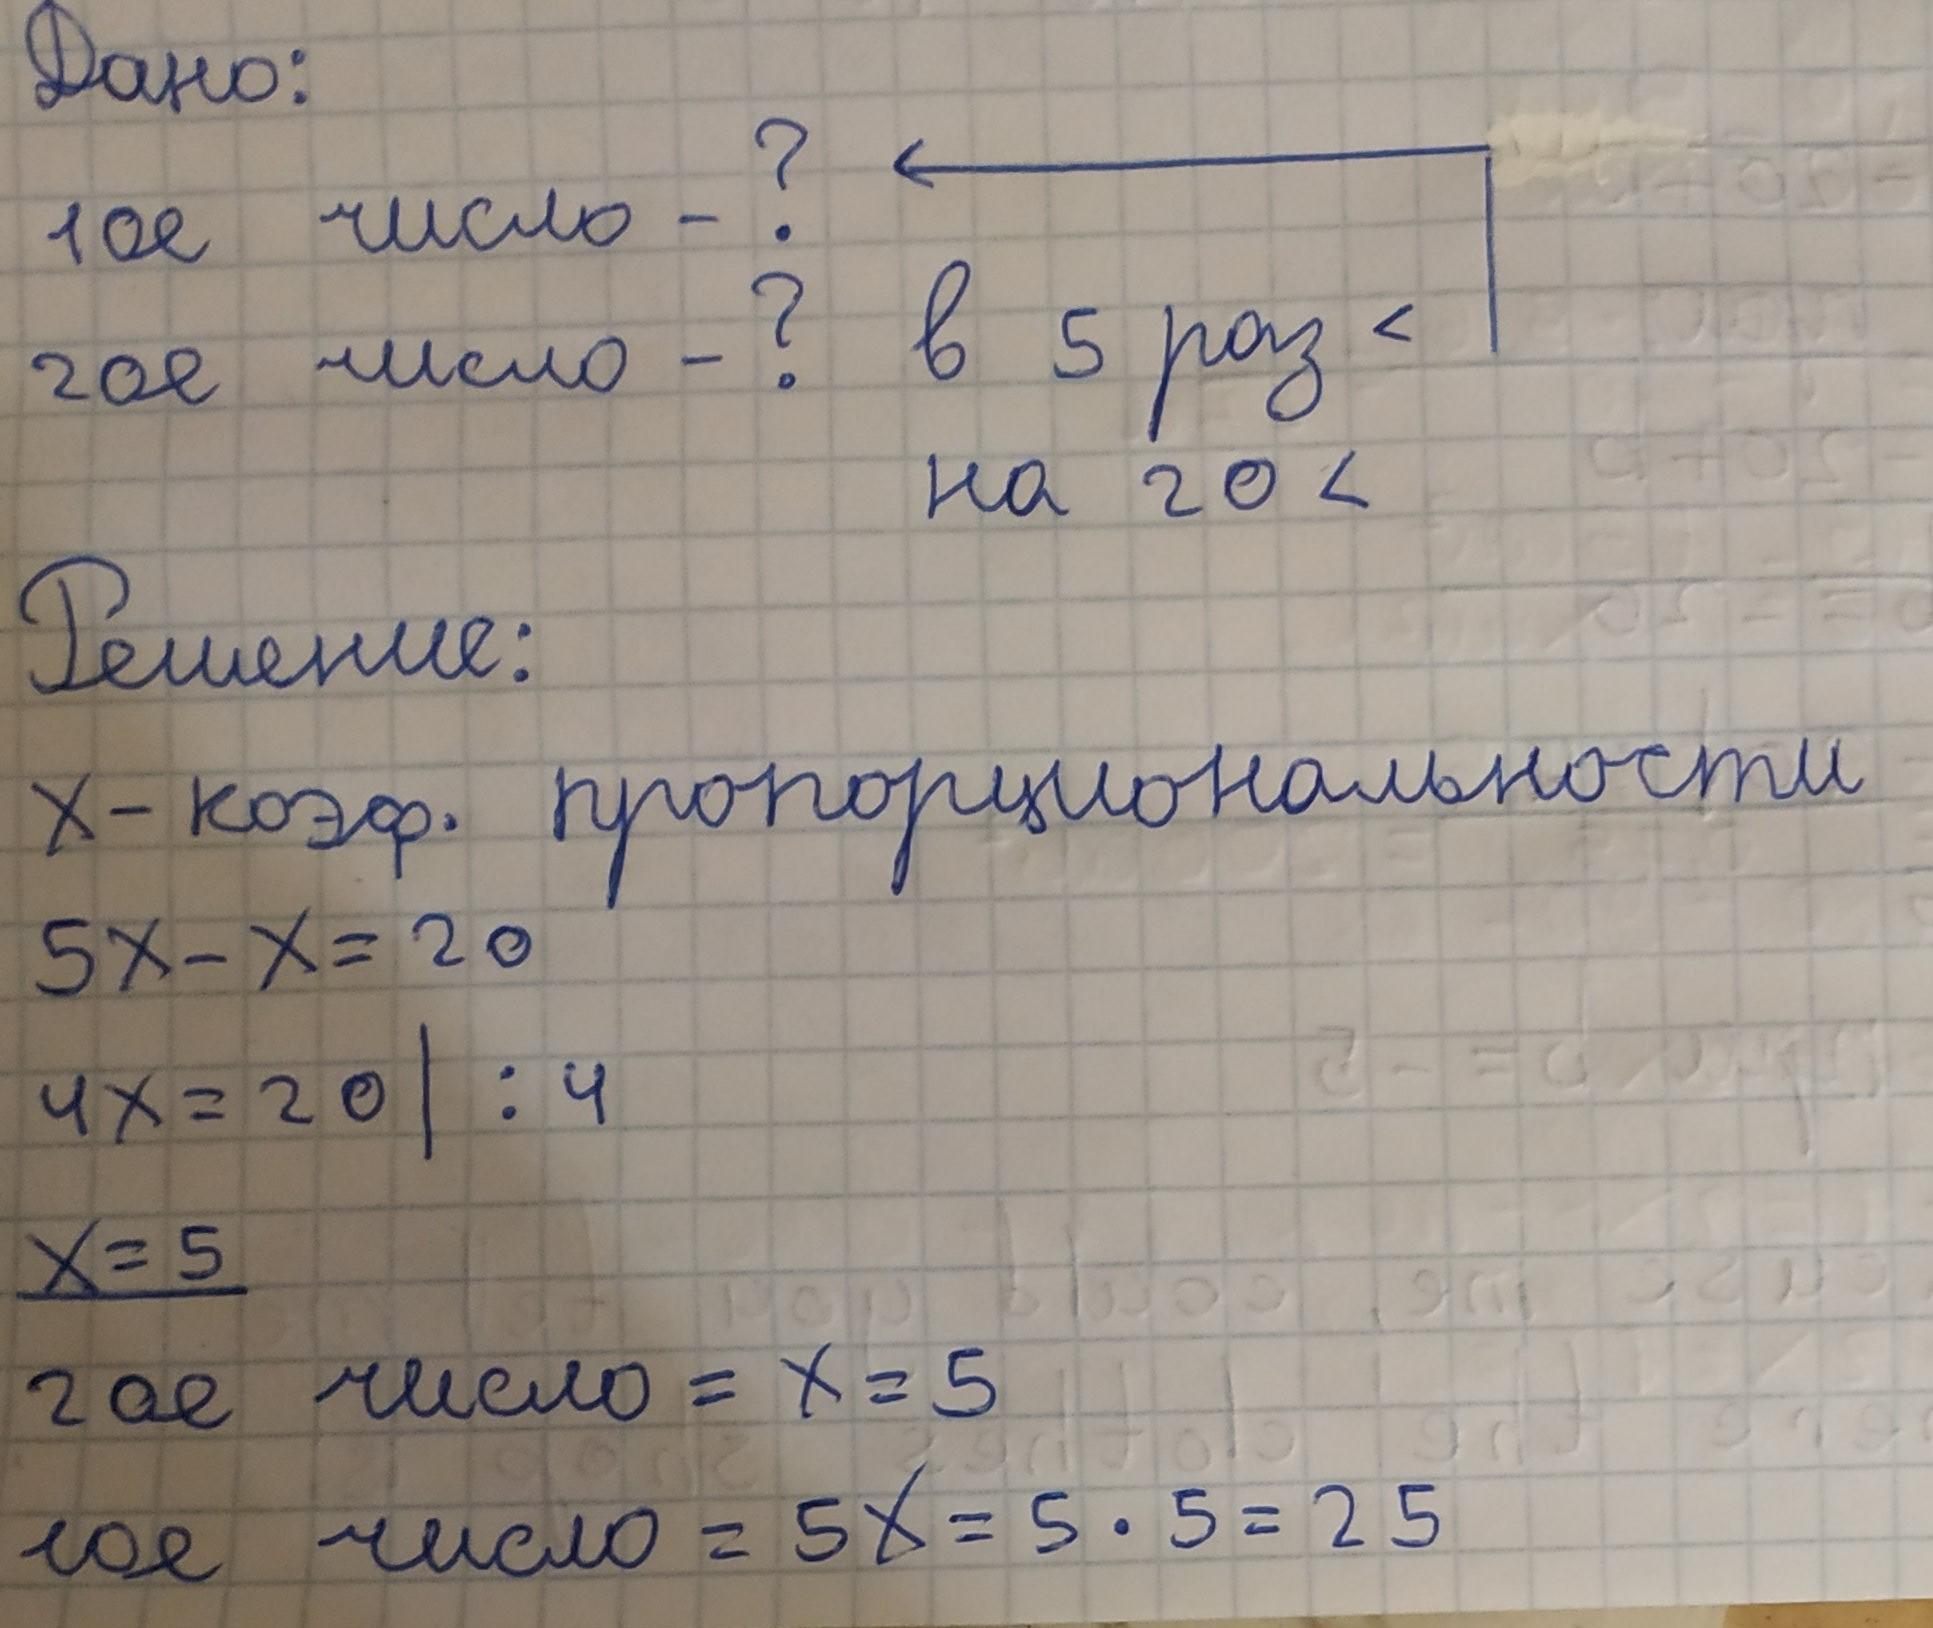 Дано:
1ое число - ?
2ое число - ? в 5 раз <
на 20 <
Решение:
x - коэф. пропорциональности
5x - x = 20
4x = 20 | : 4
x = 5
2ое число = x = 5
1ое число = 5x = 5 · 5 = 25